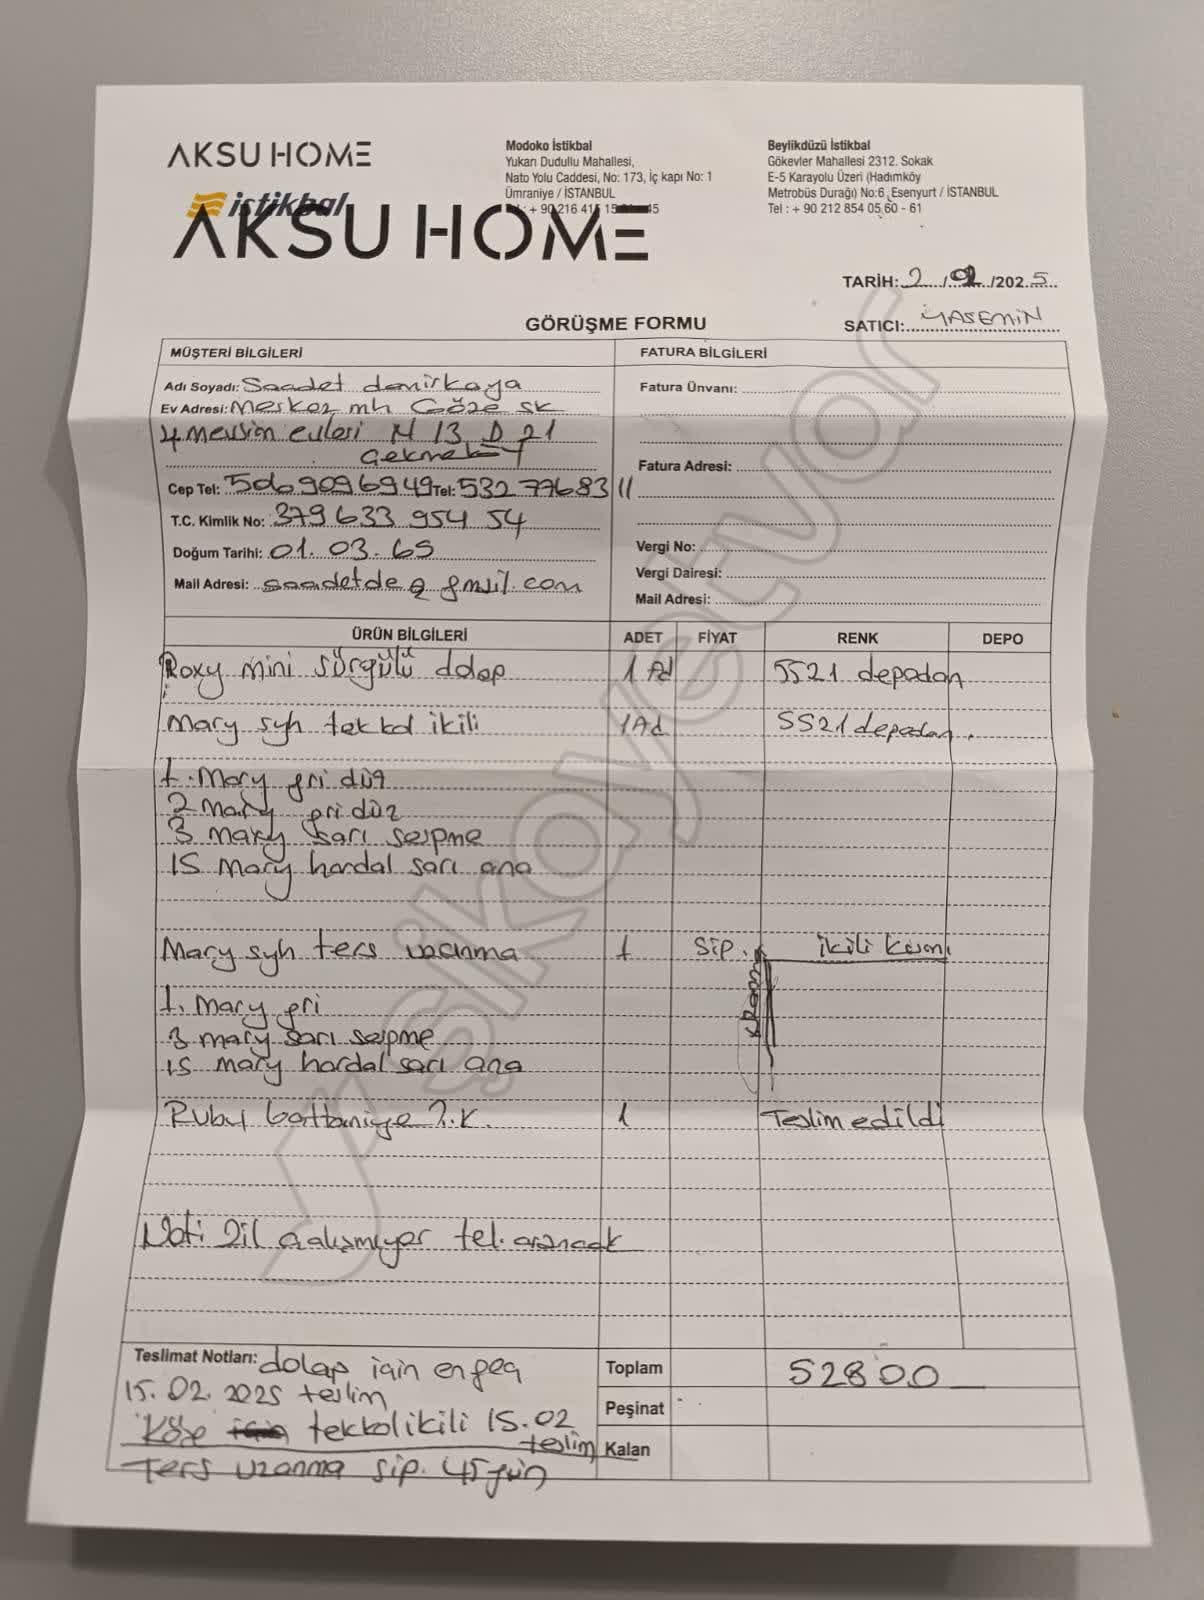 AKSU HOME
istikbal
AKSU HOME
Modoko İstikbal
Yukarı Dudullu Mahallesi,
Nato Yolu Caddesi, No: 173, İç kapı No: 1
Ümraniye / İSTANBUL
+ 90 216 415 15 45
Beylikdüzü İstikbal
Gökevler Mahallesi 2312. Sokak
E-5 Karayolu Üzeri (Hadımköy
Metrobüs Durağı) No:6 Esenyurt / İSTANBUL
Tel : + 90 212 854 05 60 - 61
TARİH: 2 / 02 /2025
GÖRÜŞME FORMU
SATICI: YASEMİN
MÜŞTERİ BİLGİLERİ
FATURA BİLGİLERİ
Adı Soyadı: Saadet demirkaya
Ev Adresi: Merkez mh Göze sk
4 mevsim evleri N 13 D 21
Çekmeköy
Cep Tel: 506 909 69 49 Tel: 532 77683 11
T.C. Kimlik No: 379 633 954 54
Doğum Tarihi: 01.03.65
Mail Adresi: saadetde@gmail.com
Fatura Ünvanı:
Fatura Adresi:
Vergi No:
Vergi Dairesi:
Mail Adresi:
ÜRÜN BİLGİLERİ ADET FİYAT RENK DEPO
Roxy mini sürgülü dolap 1 Ad 5521 depodan
Mary syh tekkol ikili 1 Ad 5521 depodan.
1. Mary gri düz
2 Mary gri düz
3 mary sarı serpme
15 Mary hardal sarı ana
Mary syh ters uzanma 1 Sip. ikili kısmı
1. Mary gri
3 mary sarı serpme
15 mary hardal sarı ana
Ruby battaniye 2.K. 1 Teslim edildi
Not: Zil çalışmıyor tel. aranacak
Teslimat Notları: dolap için en geç
15.02.2025 teslim
Köşe tekkol ikili 15.02
teslim
Ters uzanma sip. 45 gün
Toplam 52800
Peşinat
Kalan
şikayetvar